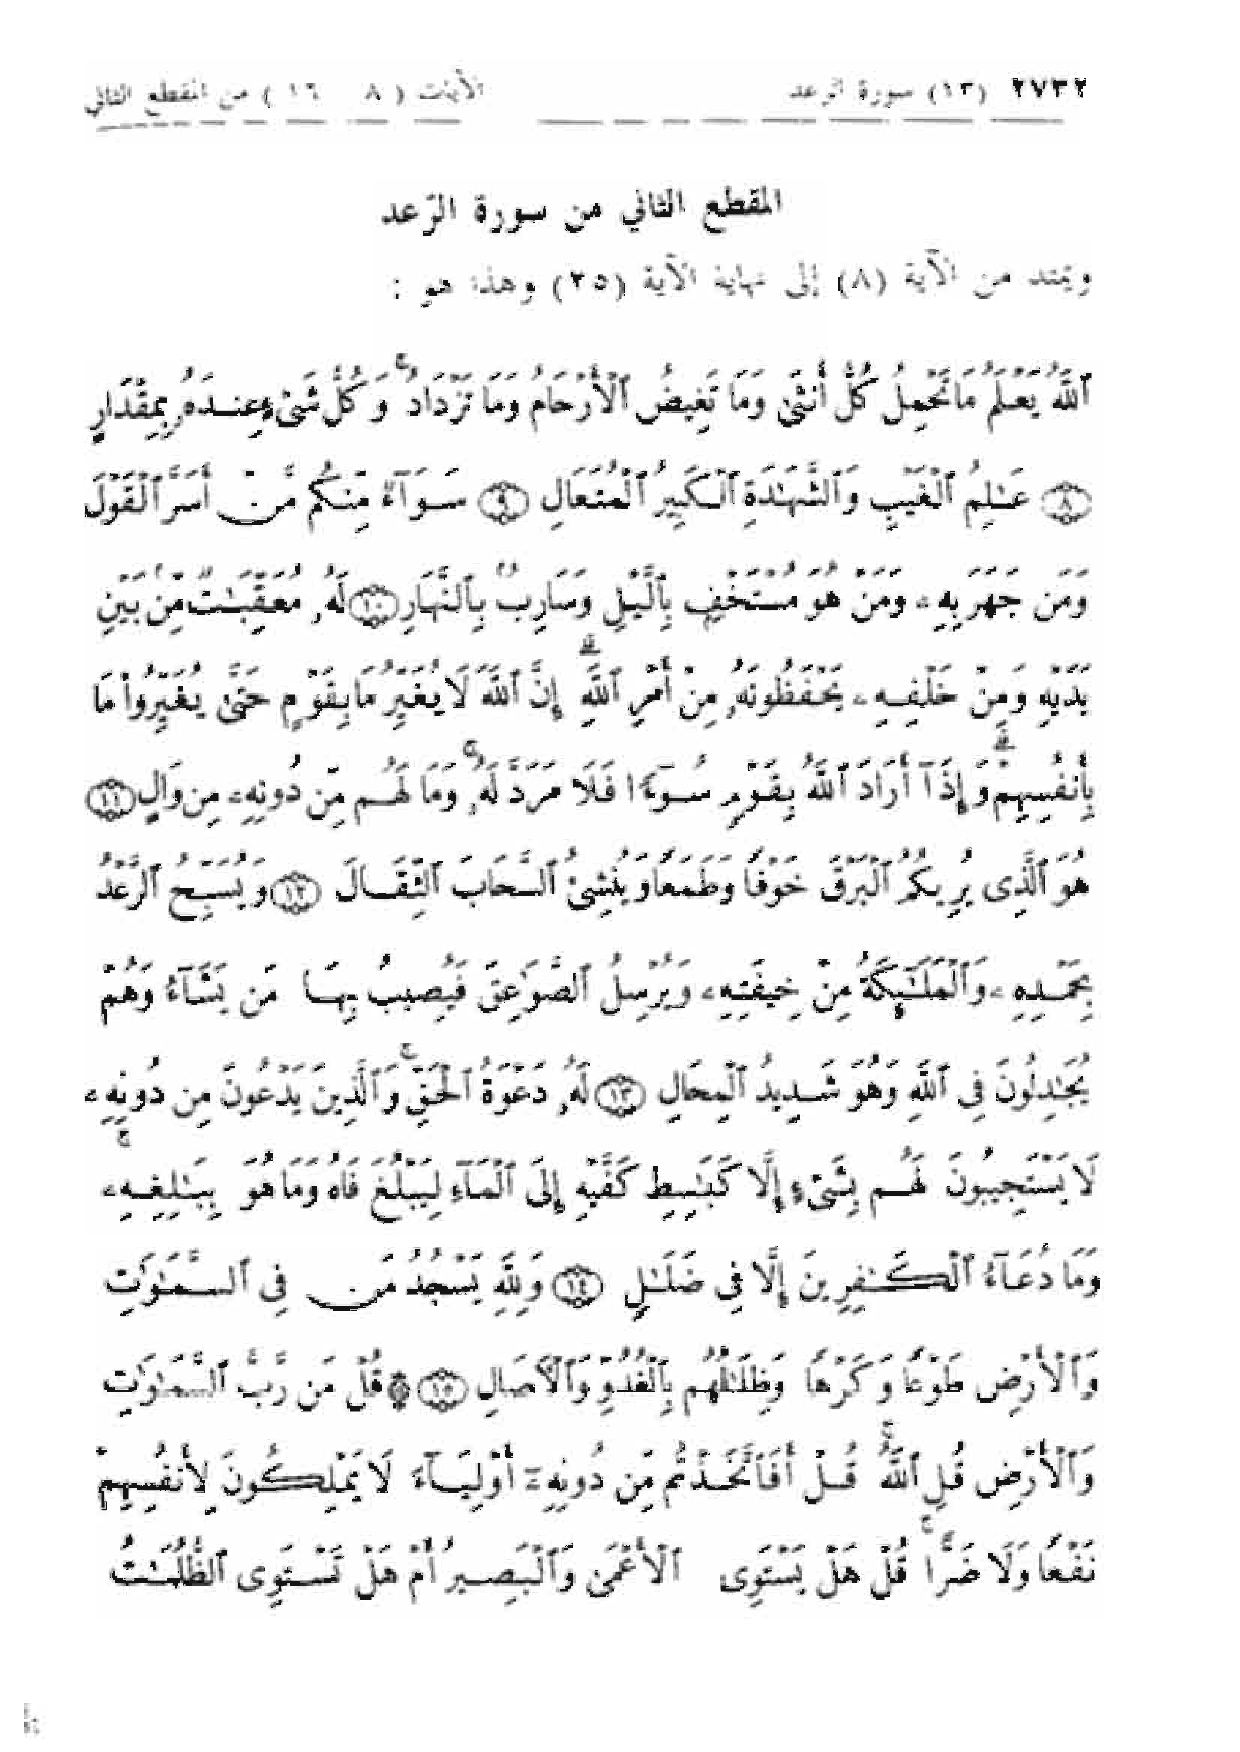 ٢٧٣٢ (١٣) سورة الرعد الآيات ( ٨ ١٦ ) من المقطع الثاني
المقطع الثاني من سورة الرّعد
ويمتد من الآية (٨) إلى نهاية الآية (٢٥) وهذا هو :
ٱللَّهُ يَعۡلَمُ مَا تَحۡمِلُ كُلُّ أُنثَىٰ وَمَا تَغِيضُ ٱلۡأَرۡحَامُ وَمَا تَزۡدَادُۚ وَكُلُّ شَىۡءٍ عِندَهُۥ بِمِقۡدَارٍ
٨ عَـٰلِمُ ٱلۡغَيۡبِ وَٱلشَّهَـٰدَةِ ٱلۡكَبِيرُ ٱلۡمُتَعَالِ ٩ سَوَآءٌ مِّنكُم مَّنۡ أَسَرَّ ٱلۡقَوۡلَ
وَمَن جَهَرَ بِهِۦ وَمَنۡ هُوَ مُسۡتَخۡفٍۭ بِٱلَّيۡلِ وَسَارِبُۢ بِٱلنَّهَارِ ١٠ لَهُۥ مُعَقِّبَـٰتٌ مِّنۢ بَيۡنِ
يَدَيۡهِ وَمِنۡ خَلۡفِهِۦ يَحۡفَظُونَهُۥ مِنۡ أَمۡرِ ٱللَّهِۗ إِنَّ ٱللَّهَ لَا يُغَيِّرُ مَا بِقَوۡمٍ حَتَّىٰ يُغَيِّرُوا۟ مَا
بِأَنفُسِهِمۡۗ وَإِذَآ أَرَادَ ٱللَّهُ بِقَوۡمٍ سُوٓءًا فَلَا مَرَدَّ لَهُۥۚ وَمَا لَهُم مِّن دُونِهِۦ مِن وَالٍ ١١
هُوَ ٱلَّذِى يُرِيكُمُ ٱلۡبَرۡقَ خَوۡفًا وَطَمَعًا وَيُنشِئُ ٱلسَّحَابَ ٱلثِّقَالَ ١٢ وَيُسَبِّحُ ٱلرَّعۡدُ
بِحَمۡدِهِۦ وَٱلۡمَلَـٰٓئِكَةُ مِنۡ خِيفَتِهِۦ وَيُرۡسِلُ ٱلصَّوَٰعِقَ فَيُصِيبُ بِهَا مَن يَشَآءُ وَهُمۡ
يُجَـٰدِلُونَ فِى ٱللَّهِ وَهُوَ شَدِيدُ ٱلۡمِحَالِ ١٣ لَهُۥ دَعۡوَةُ ٱلۡحَقِّۚ وَٱلَّذِينَ يَدۡعُونَ مِن دُونِهِۦ
لَا يَسۡتَجِيبُونَ لَهُم بِشَىۡءٍ إِلَّا كَبَـٰسِطِ كَفَّيۡهِ إِلَى ٱلۡمَآءِ لِيَبۡلُغَ فَاهُ وَمَا هُوَ بِبَـٰلِغِهِۦۚ
وَمَا دُعَآءُ ٱلۡكَـٰفِرِينَ إِلَّا فِى ضَلَـٰلٍ ١٤ وَلِلَّهِ يَسۡجُدُ مَن فِى ٱلسَّمَـٰوَٰتِ
وَٱلۡأَرۡضِ طَوۡعًا وَكَرۡهًا وَظِلَـٰلُهُم بِٱلۡغُدُوِّ وَٱلۡأَصَالِ ١٥ ۞ قُلۡ مَن رَّبُّ ٱلسَّمَـٰوَٰتِ
وَٱلۡأَرۡضِ قُلِ ٱللَّهُۚ قُلۡ أَفَٱتَّخَذۡتُم مِّن دُونِهِۦٓ أَوۡلِيَآءَ لَا يَمۡلِكُونَ لِأَنفُسِهِمۡ
نَفۡعًا وَلَا ضَرًّاۚ قُلۡ هَلۡ يَسۡتَوِى ٱلۡأَعۡمَىٰ وَٱلۡبَصِيرُ أَمۡ هَلۡ تَسۡتَوِى ٱلظُّلُمَـٰتُ